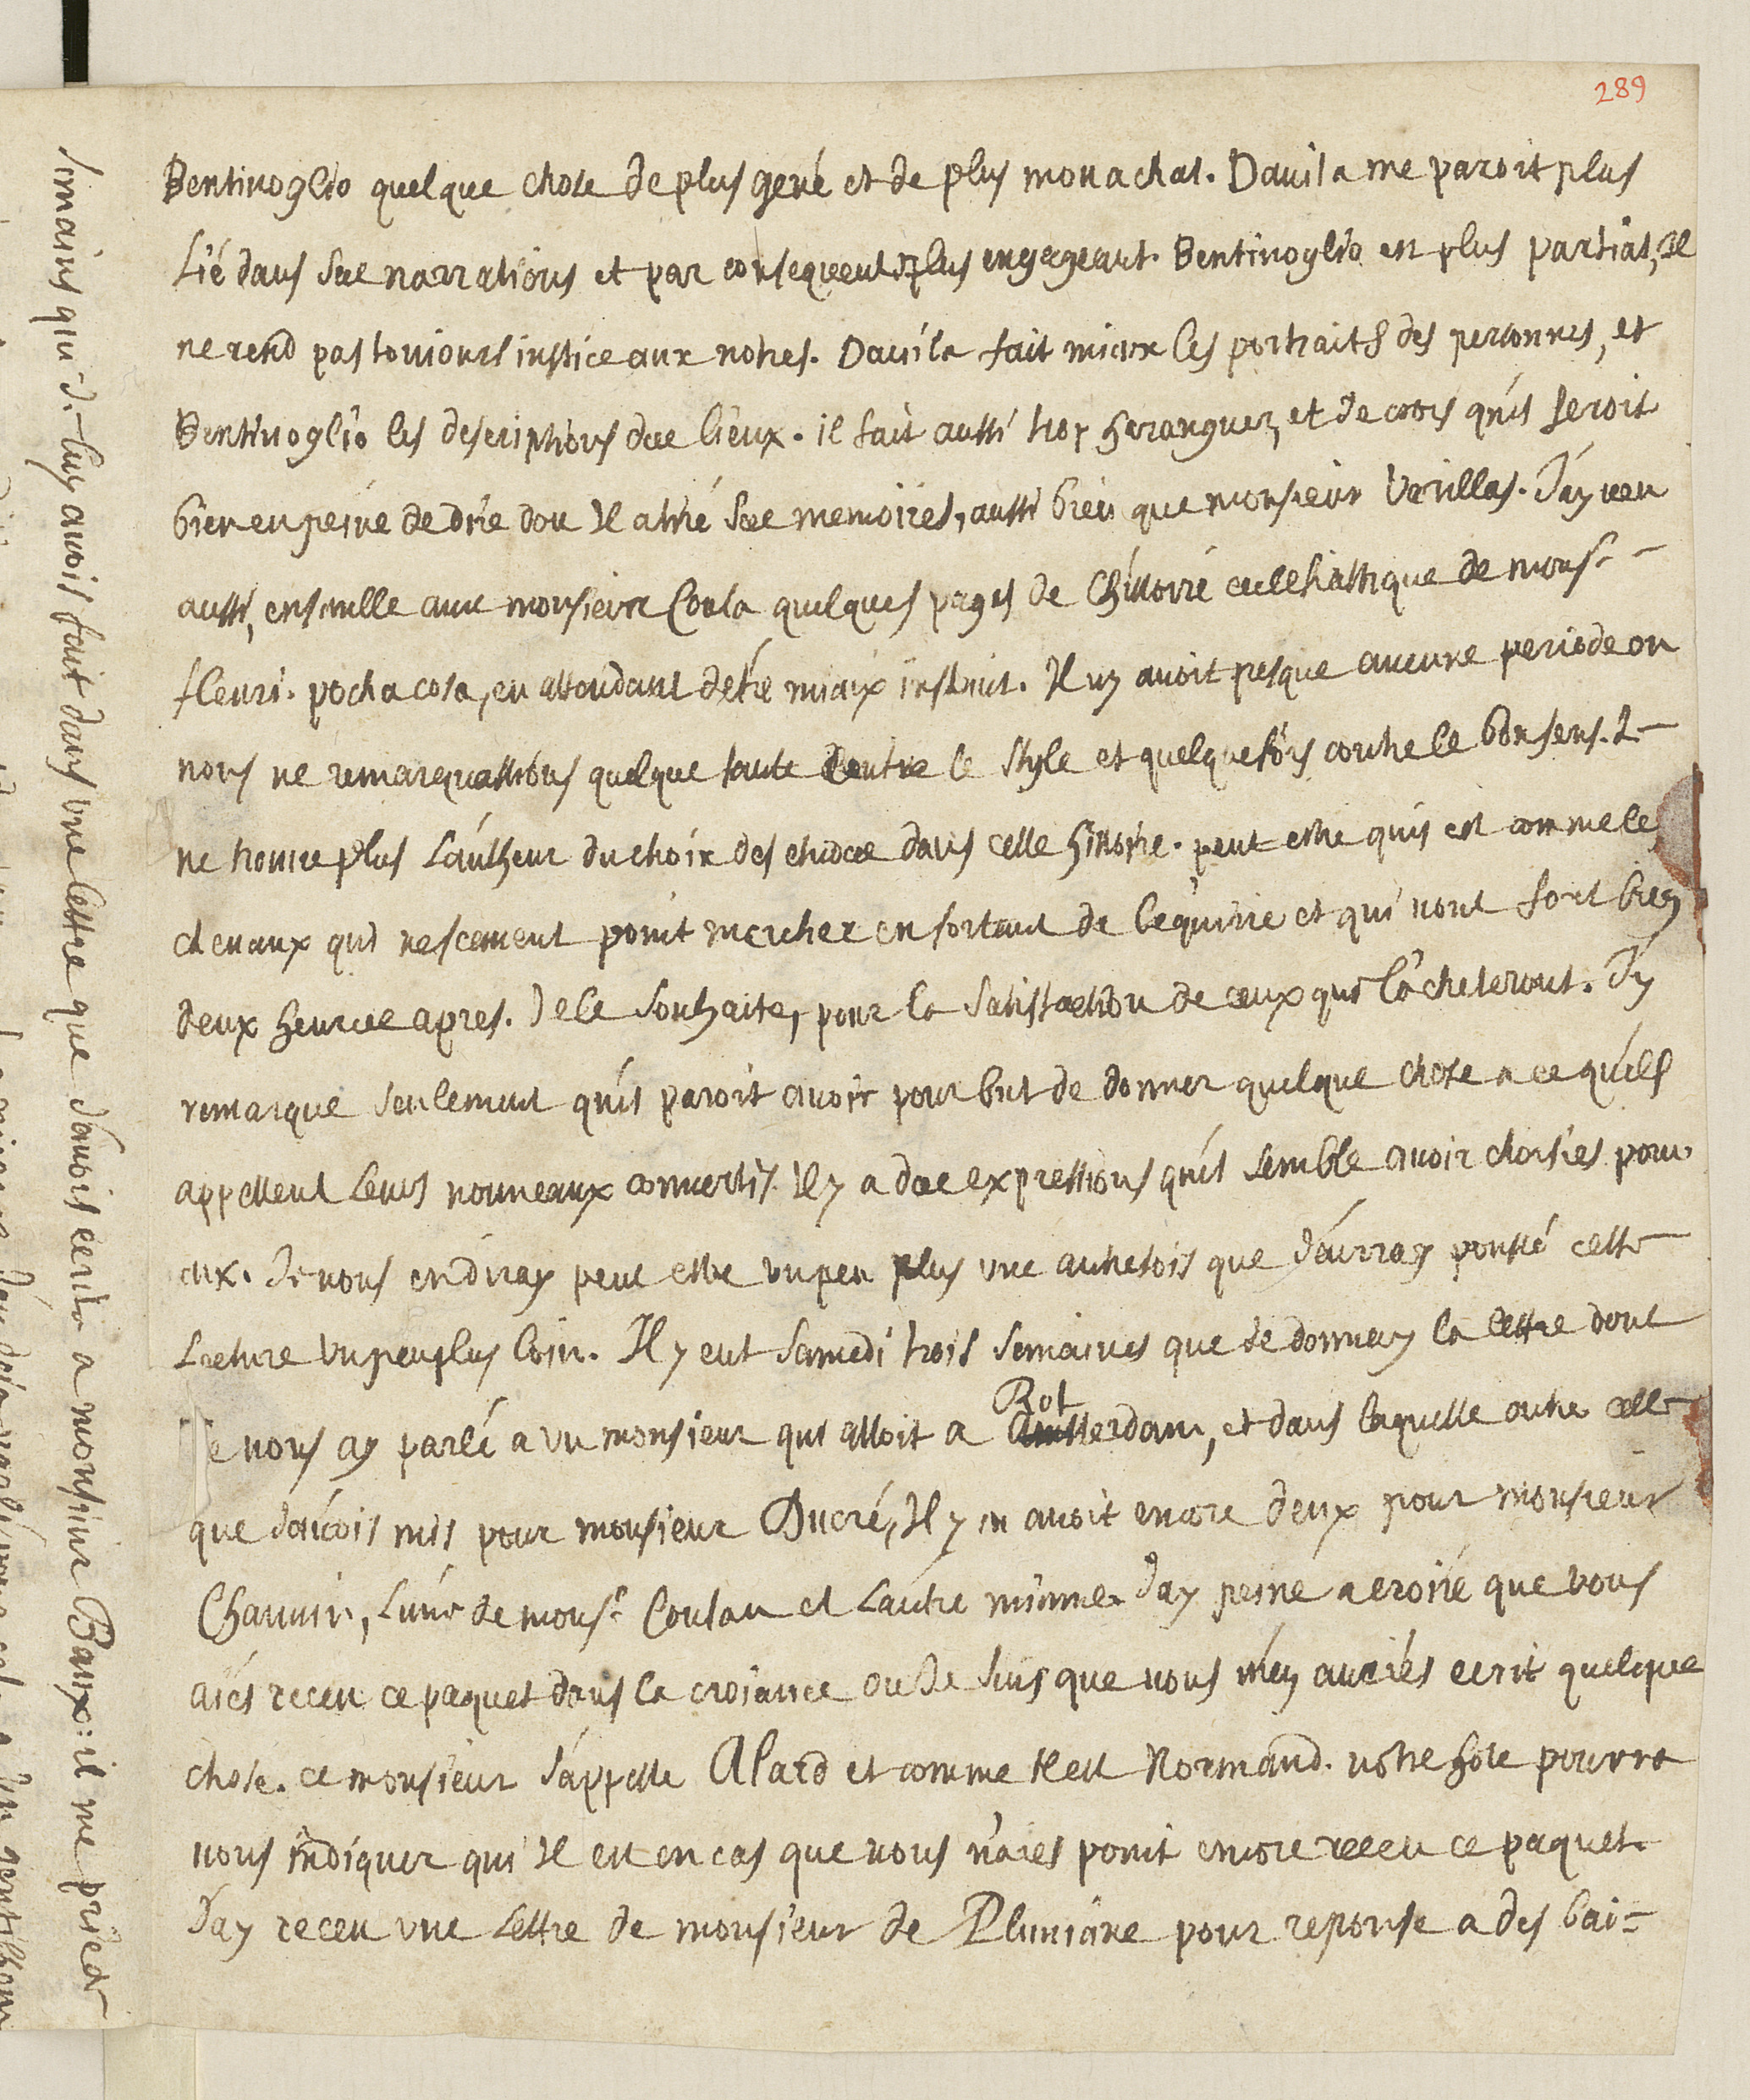 289
Bentivoglio quelque chose de plus gené et de plus monachal. Davila me paroit plus
Lié dans ses narrations et par consequent plus engageant. Bentivoglio est plus partial, Il
ne rend pas toujours justice aux notres. Davila fait mieux les portraits des personnes, et
Bentivoglio les descriptions des lieux. il fait aussi trop haranguer, et Je crois qu'il seroit
bien en peine de dire dou Il a tiré ses memoires, aussi bien que monsieur Varillas. J'ay veu
aussi, ensemble avec monsieur Coula quelques pages de l'histoire ecclesiastique de mons.r
fleuri. pocha cosa, en attendant d'être mieux instruit. Il ny avoit presque aucune periode ou
nous ne remarquassions quelque faute contre le style et quelquefois contre le bon sens. Je
ne trouve plus L'autheur du choix des etudes dans cette histoire. peut estre qu'il est comme les
chevaux qui ne scavent point marcher en sortant de l'equirie et qui vont fort bien
deux heures apres. Je le souhaite, pour la satisfaction de ceux qui l'acheteront. J'y
remarque seulement qu'il paroit avoir pour but de donner quelque chose a ce qu'ils
appellent Leurs nouveaux convertis. Il y a des expressions qu'il semble avoir choisies pour
eux. Je vous en diray peut estre un peu plus une autrefois que J'aurray poussé cette
Lecture un peu plus loin. Il y eut samedi trois semaines que Je donnay la lettre dont
Je vous ay parlé a un monsieur qui alloit a Rotterdam, et dans laquelle outre celle
que J'avois mis pour monsieur Ducré, Il y en avoit encore deux pour monsieur
Chauvin, L'une de mons.r Coulan et L'autre mienne. J'ay peine a croire que vous
aiés receu ce paquet dans la croiance ou Je suis que vous m'en auriés ecrit quelque
chose. ce monsieur s'appelle Alard et comme Il est Normand. votre hote pourra
vous indiquer qui Il est en cas que vous n'aiés point encore receu ce paquet.
J'ay receu une Lettre de monsieur de Pluniane pour reponse a des bai-
semains qui Je luy avois fait dans une lettre que J'avois ecrite a monsieur Baux: il me prie de